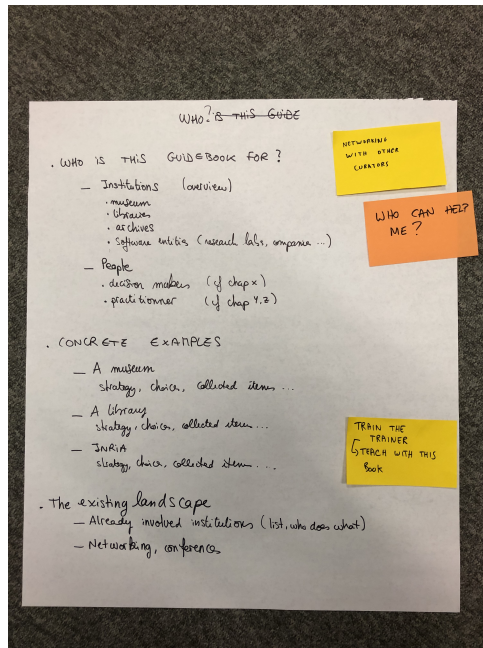 WHO? ~~IS THIS GUIDE~~
. WHO IS THIS GUIDEBOOK FOR ?
— Institutions (overview)
. museum
. libraries
. archives
. software entities (research labs, companies ...)
— People
. decision makers (cf chap x)
. practitionner (cf chap y, z)
. CONCRETE EXAMPLES
— A museum
strategy, choices, collected items ...
— A library
strategy, choices, collected items ...
— INRIA
strategy, choices, collected items ...
. The existing landscape
— Already involved institutions (list, who does what)
— Networking, conferences
NETWORKING
WITH OTHER
CURATORS
WHO CAN HELP
ME ?
TRAIN THE
TRAINER
↳ TEACH WITH THIS
BOOK